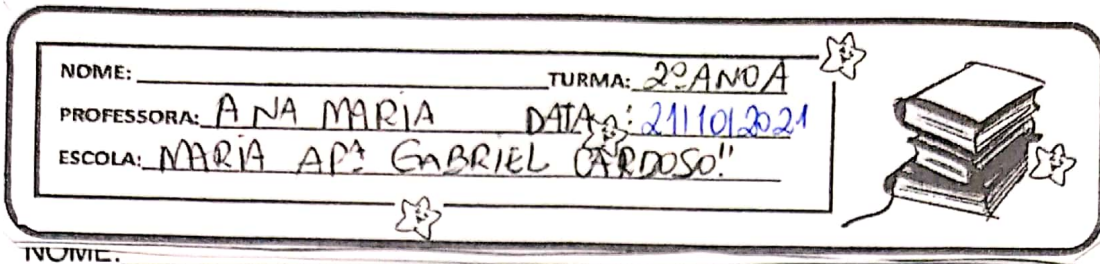 NOME: TURMA: 2º ANO A
PROFESSORA: ANA MARIA DATA: 21/10/2021
ESCOLA: MARIA APª GABRIEL CARDOSO"
NOME: